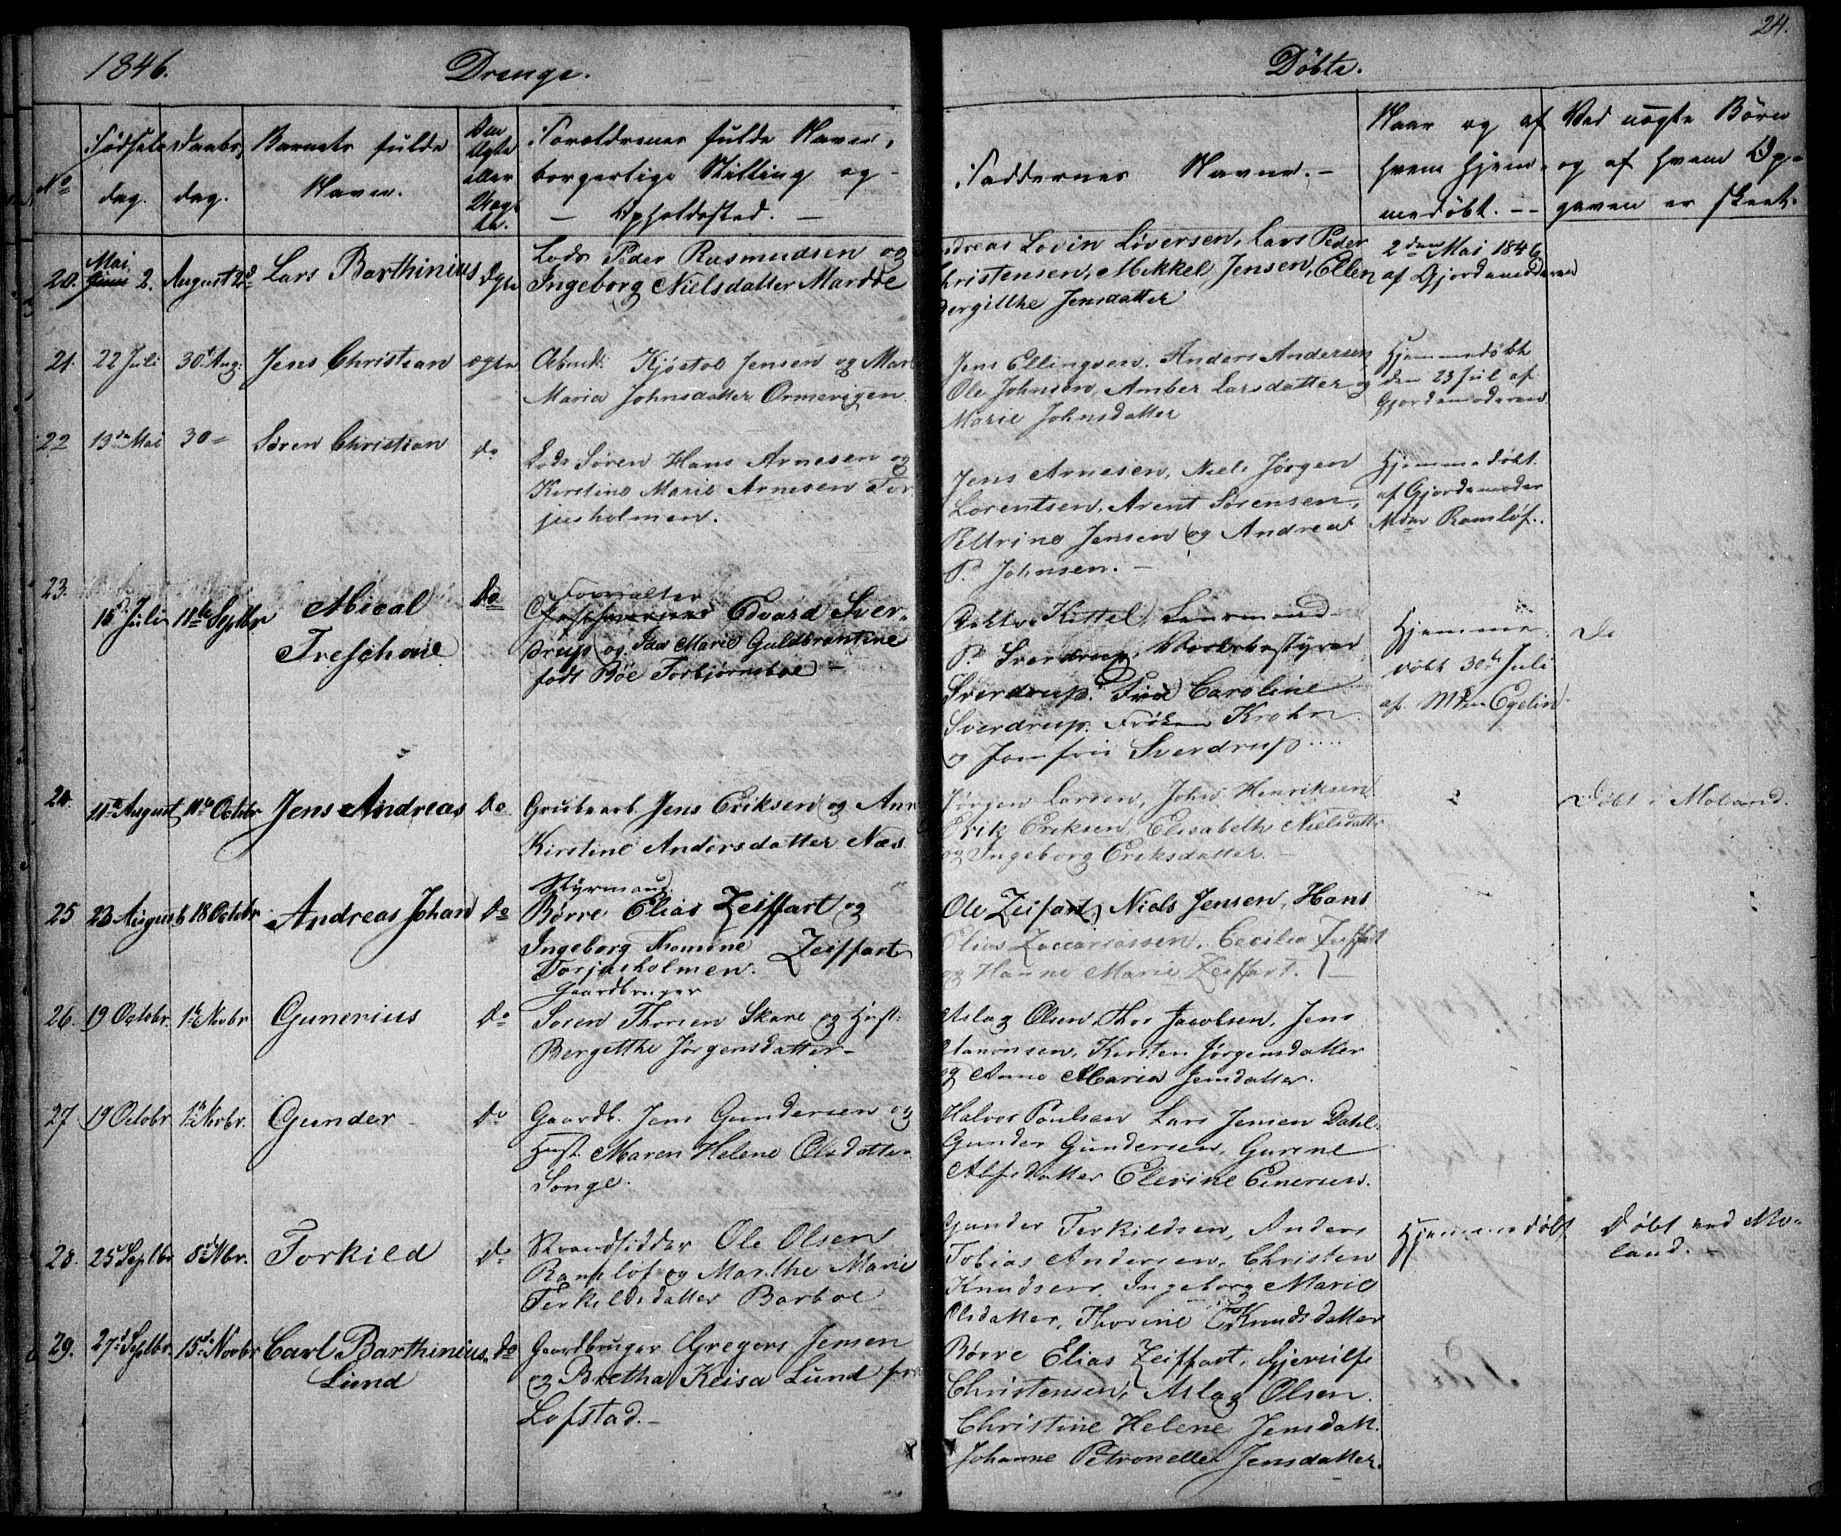 1846. Drenge. Døbte. 24.
No
Fødsels dag.
Daabs dag.
Barnets fulde Navn.
Om Ægte eller Uægte.
Forældrenes fulde Navn, borgerlige Stilling og Opholdssted.
Faddernes Navne.
Naar og af hvem hjemmedøbt.
Ved uægte Børn og af hvem Opgaven er skeet.
20. Mai 2. August 2d Lars Barthinius Ægte
Lods Peder Rasmudsen og
Ingeborg Nielsdatter Mardøe
Andreas Lovin Løversen, Lars Peder
Christensen, Mikkel Jensen, Ellen
Bergitthe Jensdatter
2den Mai 1846
af Gjordemoderen
21. 22 Juli 30t Aug: Jens Christian ægte
Arbmd: Kjøstol Jensen og Mar
Maria Johnsdatter Ormevigen
Jens Ellingsen, Anders Andersen
Ole Johnsen, Amber Larsdatter og
Marie Johnsdatter
Hjemmedøbt
den 23 Jul af
Gjordemoderen
22 13de Mai 30 Søren Christian do
Lods Søren Hans Arnesen og
Kirstine Marie Arnesen Tor
jusholmen.
Jens Arnesen, Niels Jørgen
Lorentsen, Arent Sørensen,
Petrine Jensen og Andrea
P. Johnsen.
Hjemmedøbt
af Gjordemoder
Mdm Ramløf.
23. 16 Juli 11te Septbr Mical Do
Treschow
Forvalter
Edvard Sver-
drup og Ida Marie Guldbrentine
født Bøe Torbjørnsboe
Doktor Kittel,
P. Sverdrup, Værksbestyrer
Sverdrup. Frue Caroline
Sverdrup. Frøken Krohn
og Jomfru Sverdrup
Hjemme
døbt 30te Juli
af Mdm Egelin
Do
24. 11te August 11te Octobr Jens Andreas Do
Grubearb Jens Eriksen og Ann
Kirstine Andersdatter Næs
Jørgen Larsen, John Henriksen
Erik Eriksen, Elisabeth Nielsdattr
og Ingeborg Eriksdatter.
Døbt i Moland.
25 23 August 18 Octobr Andreas Johan Do
Styrmand
Børre Elias Zeiffart og
Ingeborg Thomine Zeiffart
Torjusholmen.
Ole Zeifart, Niels Jensen, Hans
Elias Zaccariassen, Cecilia Zeiffart
og Hanne Marie Zeiffart.
26. 19 Octobr. 1te Novbr Gunerius Do
Gaardbruger
Søren Thorsen Skare og Hust:
Bergitthe Jørgensdatter
Aslag Olsen Thor Jacobsen, Jens
Aanonsen, Kirsten Jørgensdatter
og Anne Maria Jensdatter.
27 19 Octobr 1te Novbr. Gunder Do
Gaardb. Jens Gundersen og
Hust. Maren Helene Olsdatter
Songe.
Halvor Poulsen Lars Jensen Dahl.
Gunder Gundersen, Gurine
Alfsdatter Elevine Einersen.
28. 25 Septbr. 8de Nbr. Torkild do
Strandsidder Ole Olsen
Ramsløf og Marthe Marie
Terkildsdatter Barboe
Gunder Terkildsen, Anders
Tobias Andersen, Christen
Knudsen, Ingeborg Marie
Olsdatter, Thorine Knudsdatter
Hjemmedøbt
Døbt ved Mo-
land.
29. 27de Septbr. 15de Novbr Carl Barthinius Do
Lund
Gaardbruger Gregers Jensen
og Bretha Keisa Lund
Lofstad.
Børre Elias Zeiffart, Gjerulf
Christensen, Aslag Olsen.
Christine Helene Jensdatt.
Johanne Petronelle Jensdatter.